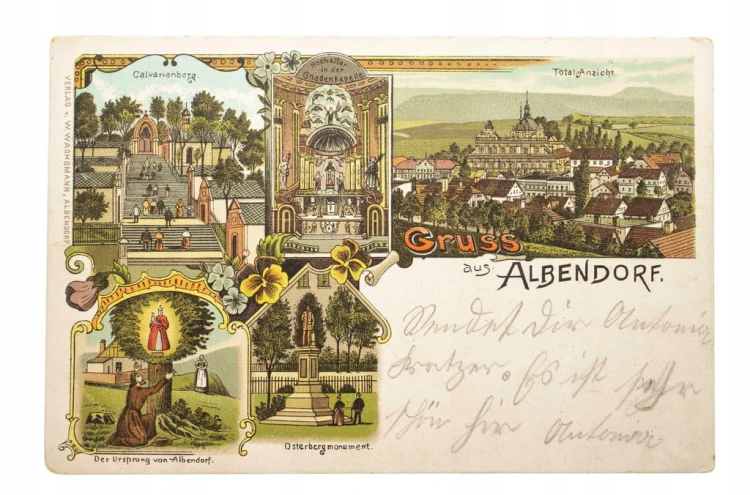 VERLAG v. W. WACHSMANN, ALBENDORF.
Calvarienberg.
Hochaltar
in der
Gnadenkapelle
Total-Anzicht.
Gruss
aus ALBENDORF.
Der Ursprung von Albendorf.
Osterbergmonument.
Sendet Dir Antonia
Kratzer. Es ist sehr
schön hier Antonia